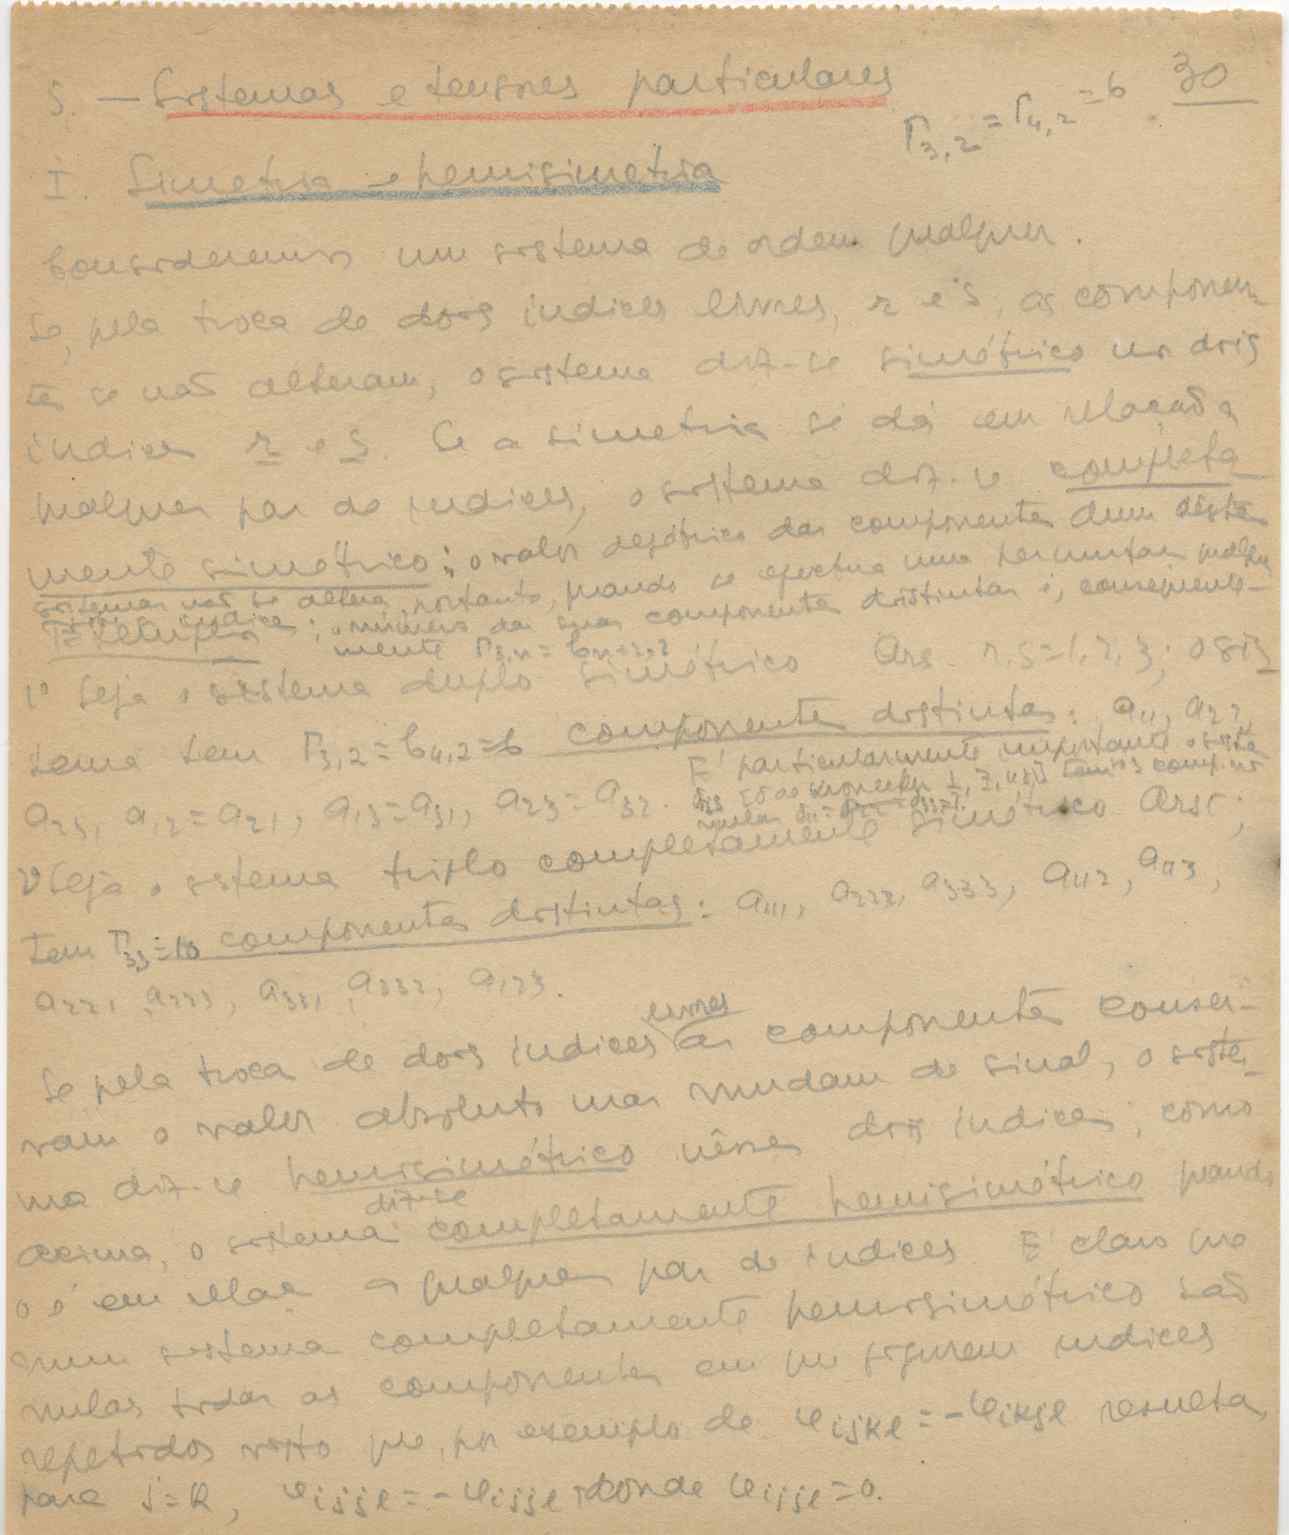 5. — Sistemas e tensores particulares
30
Γ3,2 = Γ4,2 = 6.
I. Simetria e hemisimetria
Consideremos um sistema de ordem qualquer.
Se, pela troca de dois índices livres, r e s, as componen-
tes se não alteram, o sistema diz-se simétrico nos dois
índices r e s. Se a simetria se dá em relação a
qualquer par de índices, o sistema diz-se completa-
mente simétrico; o valor das componentes dum dêstes
sistemas não se altera, portanto, quando se efectua uma permutação qualquer
índices; o número das suas componentes distintas é, consequente-
mente Γ3,n = Cn+2,2
Exemplos
1º Seja o sistema duplo simétrico ars. r,s=1,2,3; o sis-
tema tem Γ3,2 = C4,2 = 6 componentes distintas: a11, a22,
a33, a12=a21, a13=a31, a23=a32.
É particularmente importante o sistema
2º Seja o sistema triplo completamente simétrico arst;
tem Γ3,3=10 componentes distintas: a111, a222, a333, a112, a113,
a221, a223, a331, a332, a123.
Se pela troca de dois índices livres as componentes conser-
vam o valor absoluto mas mudam de sinal, o siste-
ma diz-se hemisimétrico nêsses dois índices; como
acima, o sistema diz-se completamente hemisimétrico quando
o é em relação a qualquer par de índices. É claro que
num sistema completamente hemisimétrico são
nulas todas as componentes em que figurem indices
repetidos visto que, por exemplo de eijkl = -eikjl resulta,
para j=k, eijjl = -eijjl donde eijjl = 0.